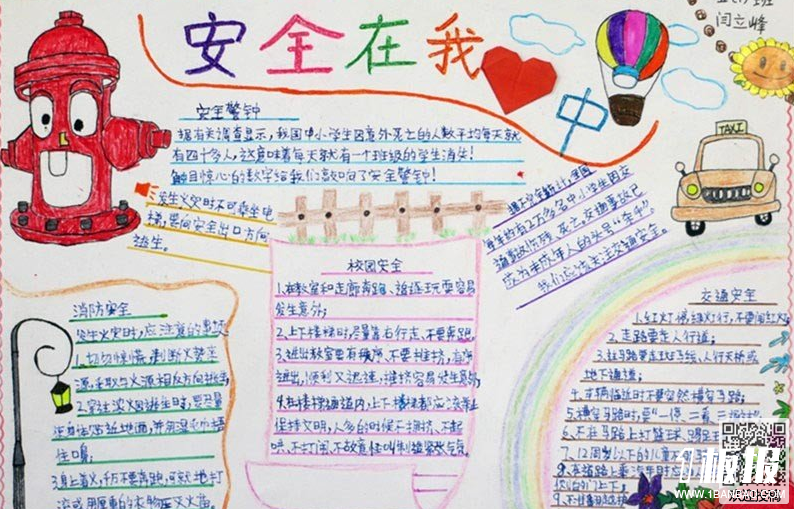 安全在我心中
闫立峰
安全警钟
据有关调查显示,我国中小学生因意外死亡的人数平均每天就
有四十多人,这意味着每天就有一个班级的学生消失!
触目惊心的数字给我们敲响了安全警钟!
发生火灾时不可乘坐电
梯,要向安全出口方向
逃生。
我们应该关注交通安全。
TAXI
校园安全
1.在教室和走廊奔跑、追逐玩耍容易
发生意外;
2.上下楼梯时,尽量靠右行走,不要奔跑
3.进出教室要有秩序,不要推挤,有序
进出,便利又迅速,推挤容易发生意外;
4.在楼梯通道内,上下楼梯都应该
保持文明,人多的时候不拥挤、不起
哄、不打闹、不故意怪叫制造紧张气氛
消防安全
发生火灾时,应注意的事项
1.切勿惊慌,判断火势来
源,采取与火源相反方向逃生
2.穿过浓烟逃生时,要尽量
使身体贴近地面,并用湿巾捂
住口鼻
3.身上着火,千万不要奔跑,可就地打
滚或用厚重的衣物压灭火苗。
交通安全
1.红灯停,绿灯行,不要闯红灯
2.走路要走人行道;
3.过马路要走斑马线、人行天桥或
地下通道;
4.车辆临近时不要突然横穿马路;
5.横穿马路时,要“一停二看三
6.不在马路上打篮球、踢足
7.12周岁以下的儿童
板报
WWW.1BANBAO.COM